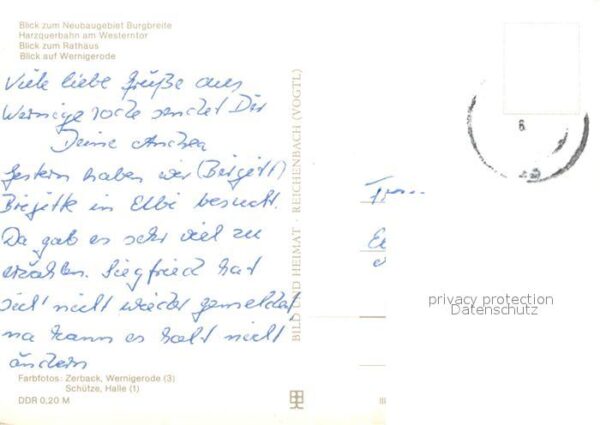 Blick zum Neubaugebiet Burgbreite
Harzquerbahn am Westerntor
Blick zum Rathaus
Blick auf Wernigerode
Viele liebe Grüße aus
Wernigerode sendet Dir
Deine Andrea
Gestern haben wir (Birgitt)
Brigitte in Elbi besucht.
Da gab es sehr viel zu
erzählen. Siegfried hat
sich nicht wieder gemeldet
na kann es halt nicht
ändern
Farbfotos: Zerback, Wernigerode (3)
Schütze, Halle (1)
DDR 0,20 M
BILD UND HEIMAT · REICHENBACH (VOGTL)
6
privacy protection
Datenschutz
III